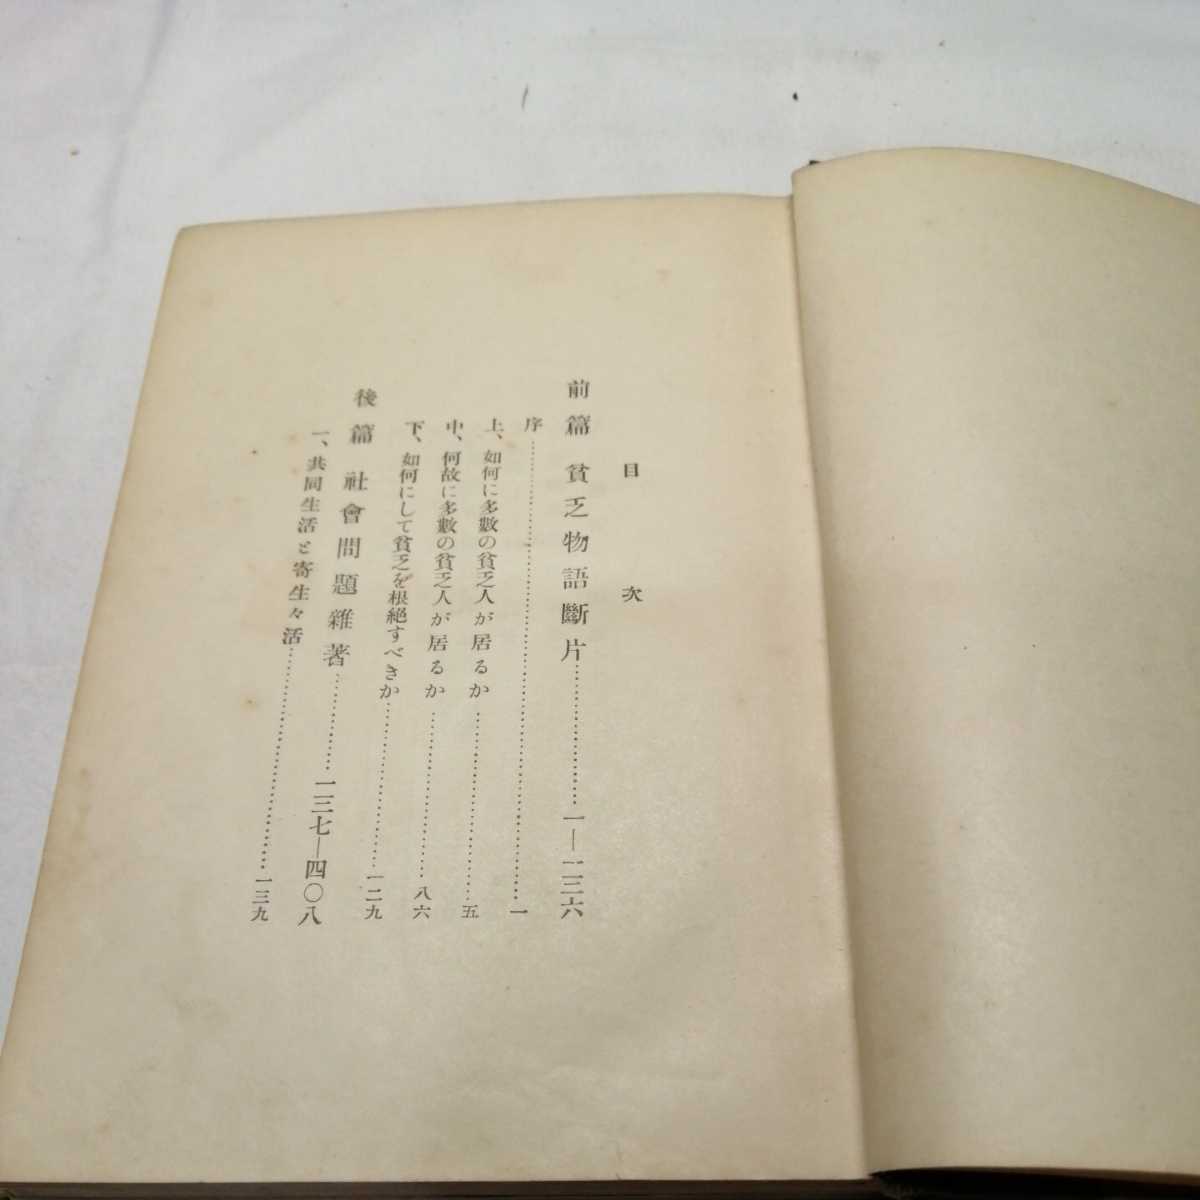 目次
前篇 貧乏物語斷片……………一—一三六
序……………一
上、如何に多數の貧乏人が居るか……………五
中、何故に多數の貧乏人が居るか……………八六
下、如何にして貧乏を根絶すべきか……………一二九
後篇 社會問題雜著……………一三七—四〇八
一、共同生活と寄生々活……………一三九